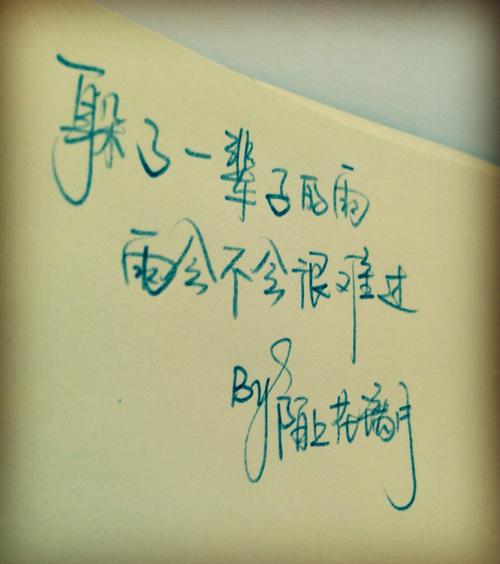 躲了一辈子的雨
雨会不会很难过
By 陌上花满月